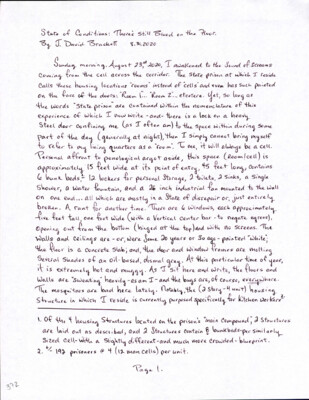 State of Conditions: There's still Blood on the Floor.
By J. David Brackett 8.31.2020
Sunday morning, August 23rd, 2020, I awakened to the sound of screams
coming from the cell across the corridor. The state prison at which I reside
calls these housing locations 'rooms' instead of cells and even has such painted
on the face of the doors: 'Room 1'... 'Room 2'... etcetera. Yet, so long as
the words 'state prison' are contained within the nomenclature of this
experience of which I now write - and - there is a lock on a heavy
steel door confining me (as I often am) to the space within during some
part of the day (generally at night), then I simply cannot bring myself
to refer to my living quarters as a 'room.' To me, it will always be a cell.
Personal affront to penological argot aside, this space (room/cell) is
approximately 15 feet wide at its point of entry, 45 feet long, contains
6 bunk beds, 12 lockers for personal storage, 2 toilets, 2 sinks, a single
shower, a water fountain, and a 26 inch industrial fan mounted to the wall
on one end... all which are mostly in a state of disrepair or, just entirely
broken. A rant for another time. There are 6 windows, each approximately
five feet tall, one foot wide (with a vertical center bar - to negate egress),
opening out from the bottom (hinged at the top) and with no screens. The
walls and ceilings are - or, were some 20 years or so ago - painted 'white',
the floor is a concrete slab, and, the door and window frames are rusting
several shades of an oil-based, dismal grey. At this particular time of year,
it is extremely hot and muggy. As I sit here and write, the floors and
walls are 'sweating' heavily - as am I - and the bugs are, of course, everywhere.
The mosquitoes are bad here lately. Notably, the (2 story - 4 unit) housing
structure in which I reside is currently purposed specifically for kitchen workers.²
1. Of the 4 housing structures located on the prison's 'main compound', 2 structures
are laid out as described, and 2 structures contain 8 bunkbeds - per similarly
sized cell - with a slightly different - and much more crowded - blueprint.
2. 192 prisoners ÷ 4 (12 man cells) per unit.
Page 1.